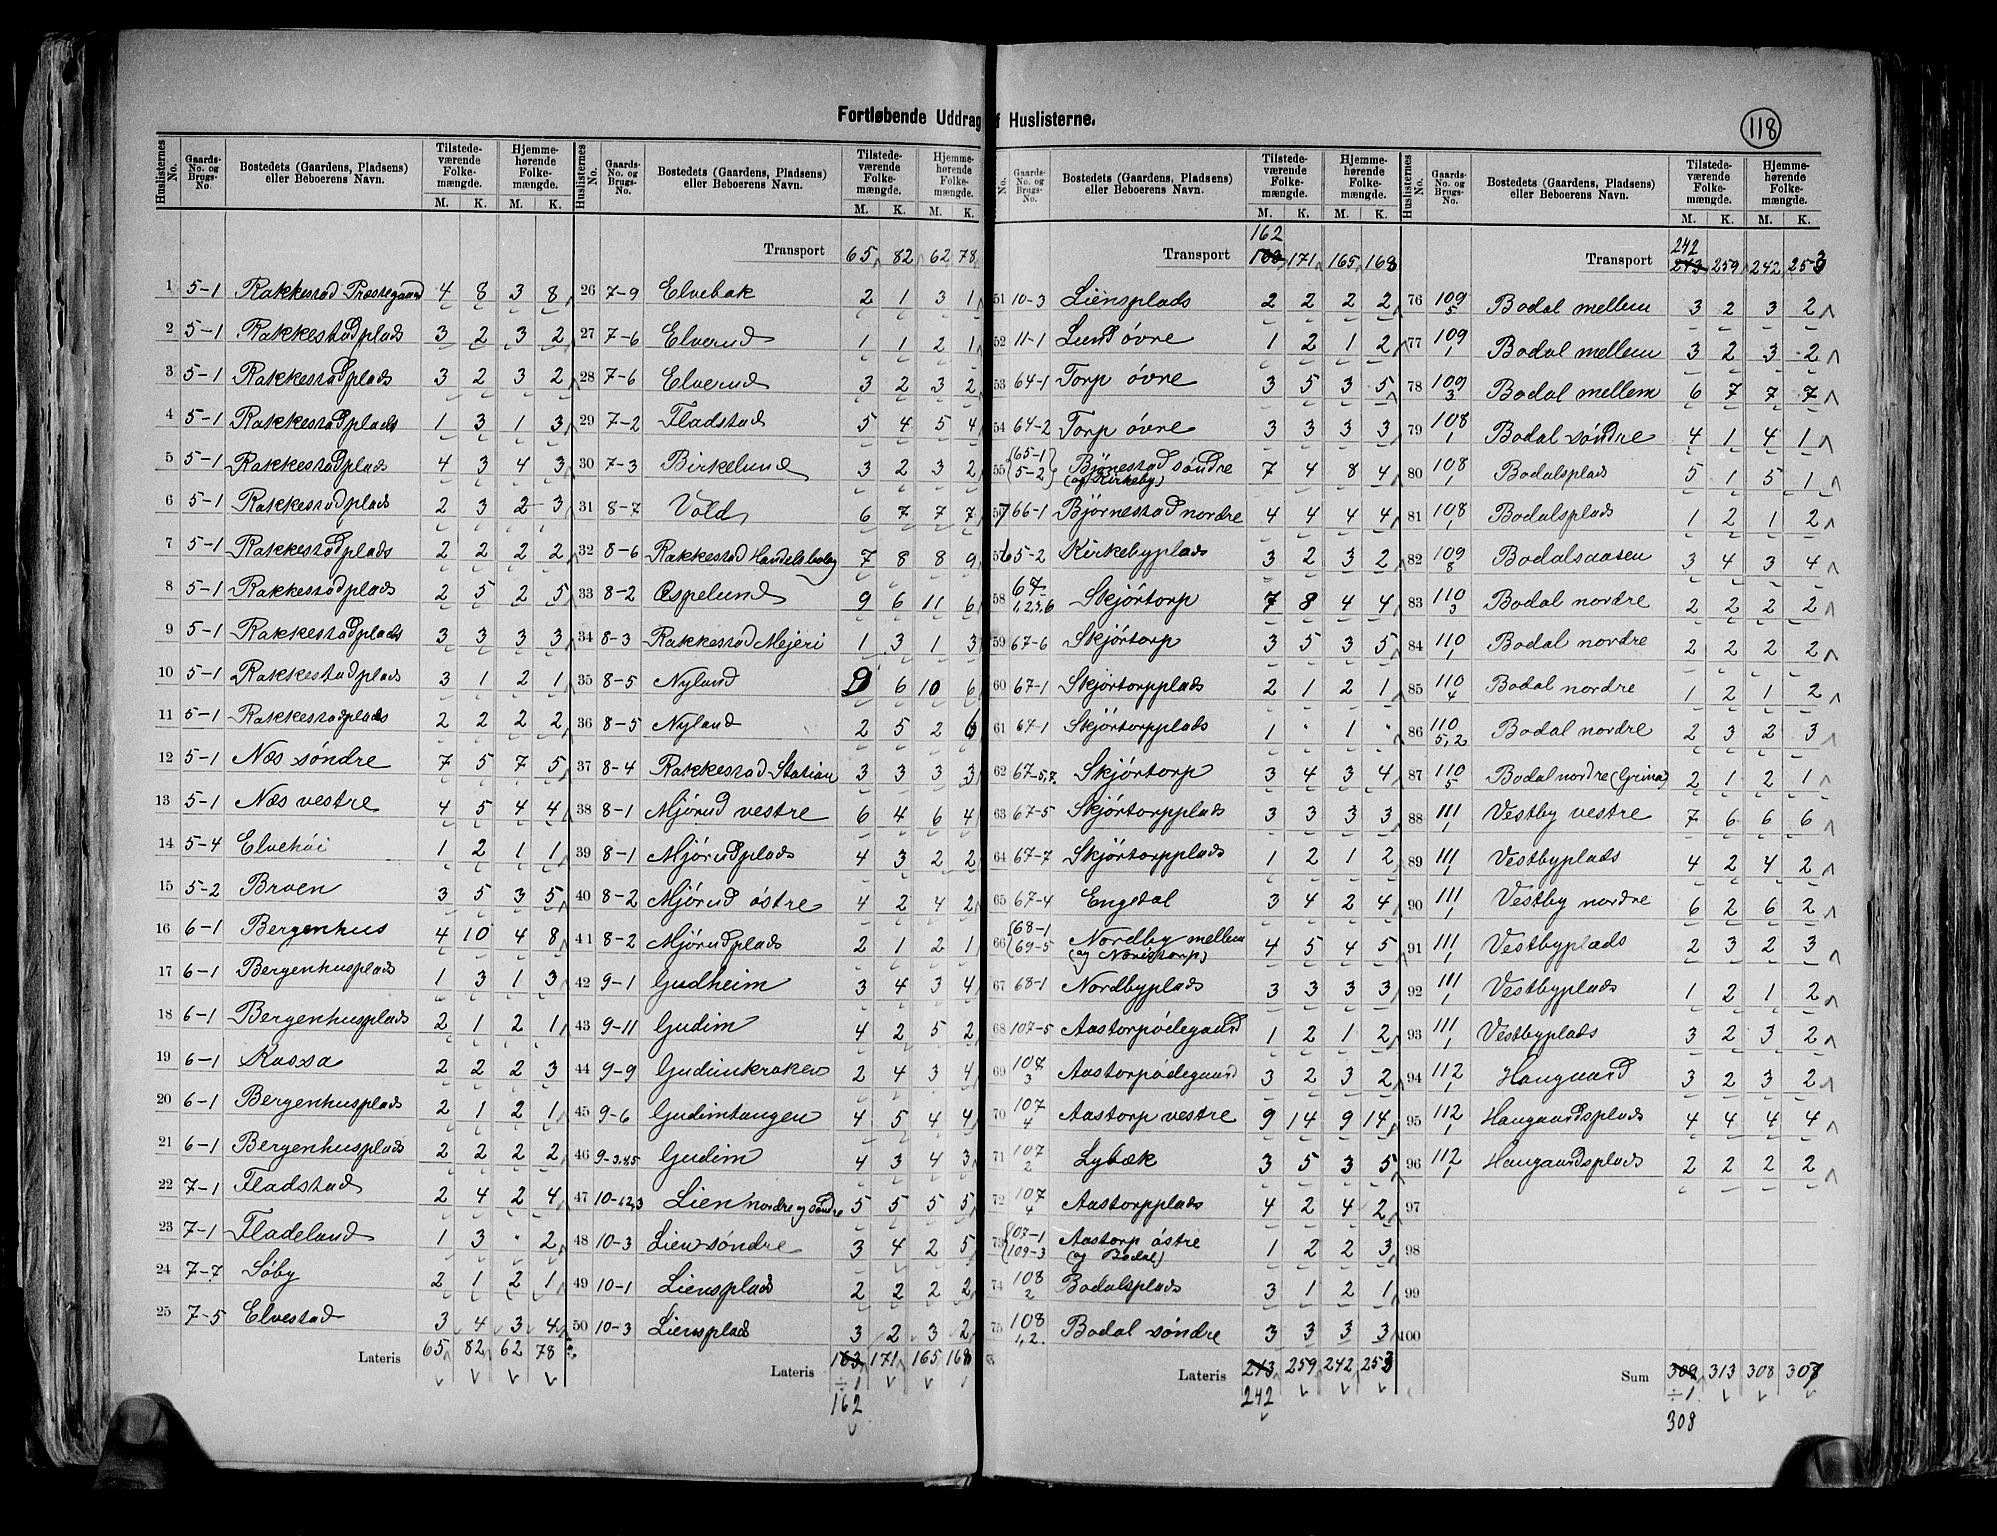 Fortløbende Uddrag af Huslisterne.
118
Huslisternes No. Gaards-No. og Brugs-No. Bostedets (Gaardens, Pladsens) eller Beboerens Navn. Tilstedeværende Folkemængde. Hjemmehørende Folkemængde.
M. K. M. K.
1 5-1 Rakkestad Præstegaard 4 8 3 8
2 5-1 Rakkestadplads 3 2 3 2
3 5-1 Rakkestadplads 3 2 3 2
4 5-1 Rakkestadplads 1 3 1 3
5 5-1 Rakkestadplads 4 3 4 3
6 5-1 Rakkestadplads 2 3 2 3
7 5-1 Rakkestadplads 2 2 2 2
8 5-1 Rakkestadplads 2 5 2 5
9 5-1 Rakkestadplads 3 3 3 3
10 5-1 Rakkestadplads 3 1 2 1
11 5-1 Rakkestadplads 2 2 2 2
12 5-1 Næs søndre 7 5 7 5
13 5-1 Næs vestre 4 5 4 4
14 5-4 Elvehøi 1 2 1 1
15 5-2 Broen 3 5 3 5
16 6-1 Bergenhus 4 10 4 8
17 6-1 Bergenhusplads 1 3 1 3
18 6-1 Bergenhusplads 2 1 2 1
19 6-1 Kassa 2 2 2 3
20 6-1 Bergenhusplads 2 1 2 1
21 6-1 Bergenhusplads 2 2 2 2
22 7-1 Fladstad 2 4 2 4
23 7-1 Fladelund 1 3 " 2
24 7-7 Søby 2 1 2 1
25 7-5 Elvestad 3 4 3 4
Lateris 65 82 62 78
Huslisternes No. Gaards-No. og Brugs-No. Bostedets (Gaardens, Pladsens) eller Beboerens Navn. Tilstedeværende Folkemængde. Hjemmehørende Folkemængde.
M. K. M. K.
Transport 65 82 62 78
26 7-9 Elvebak 2 1 3 1
27 7-6 Elverud 1 1 2 1
28 7-6 Elverud 3 2 3 2
29 7-2 Fladstad 5 4 5 4
30 7-3 Birkelund 3 2 3 2
31 8-7 Vold 6 7 7 7
32 8-6 Rakkestad Handelsbolag 7 8 8 9
33 8-2 Espelund 9 6 11 6
34 8-3 Rakkestad Mejeri 1 3 1 3
35 8-5 Nyland 6 10 6
36 8-5 Nyland 2 5 2 6
37 8-4 Rakkestad Station 3 3 3 3
38 8-1 Mjørud vestre 6 4 6 4
39 8-1 Mjørudplads 4 3 2 2
40 8-2 Mjørud østre 4 2 4 2
41 8-2 Mjørudplads 2 1 2 1
42 9-1 Gudheim 3 4 3 4
43 9-11 Gudim 4 2 5 2
44 9-9 Gudimkroken 2 4 3 4
45 9-6 Gudimtangen 4 5 4 4
46 9-3,4,5 Gudim 4 3 4 3
47 10-1,2,3 Lien nordre og søndre 5 5 5 5
48 10-3 Lien søndre 3 4 2 5
49 10-1 Liensplads 2 2 2 2
50 10-3 Liensplads 3 2 3 2
Lateris 163 171 165 168
÷1
162
No. Gaards-No. og Brugs-No. Bostedets (Gaardens, Pladsens) eller Beboerens Navn. Tilstedeværende Folkemængde. Hjemmehørende Folkemængde.
M. K. M. K.
162
Transport 163 171 165 168
51 10-3 Liensplads 2 2 2 2
52 11-1 Lund øvre 1 2 1 2
53 64-1 Torp øvre 3 5 3 5
54 64-2 Torp øvre 3 3 3 3
55 {65-1 5-2} Bjønestad søndre (og Kirkeby) 7 4 8 4
57 66-1 Bjørnestad nordre 4 4 4 4
56 5-2 Kirkebyplads 3 2 3 2
58 67-1,2,3,6 Skjørtorp 7 8 4 4
59 67-6 Skjørtorp 3 5 3 5
60 67-1 Skjørtorpplads 2 1 2 1
61 67-1 Skjørtorpplads 1 " 1 "
62 67-5,7. Skjørtorp 3 4 3 4
63 67-5 Skjørtorpplads 3 3 3 3
64 67-7 Skjørtorpplads 1 2 1 2
65 67-4 Engedal 3 4 2 4
66 {68-1 69-5 Nordby mellem (og Neristorp) 4 5 4 5
67 68-1 Nordbyplads 3 3 3 3
68 107-5 Aastorpødegaard 1 2 1 2
69 107 3 Aastorpødegaard 3 2 3 2
70 107 4 Aastorp vestre 9 14 9 14
71 107 2 Lybæk 3 5 3 5
72 107 4 Aastorpplads 4 2 4 2
73 {107-1 109-3 Aastorp østre (og Bodal) 1 2 2 3
74 108 2 Bodalsplads 3 1 2 1
75 108 1,2. Bodal søndre 3 3 3 3
Lateris 243 259 242 253
242
Huslisternes No. Gaards-No. og Brugs-No. Bostedets (Gaardens, Pladsens) eller Beboerens Navn. Tilstedeværende Folkemængde. Hjemmehørende Folkemængde.
M. K. M. K.
242
Transport 243 259 242 253
76 109 5 Bodal mellem 3 2 3 2
77 109 1 Bodal mellem 3 2 3 2
78 109 3 Bodal mellem 6 7 7 7
79 108 1 Bodal søndre 4 1 4 1
80 108 1 Bodalsplads 5 1 5 1
81 108 1 Bodalsplads 1 2 1 2
82 109 8 Bodalsaasen 3 4 3 4
83 110 3 Bodal nordre 2 2 2 2
84 110 1 Bodal nordre 2 2 2 2
85 110 4 Bodal nordre 1 2 1 2
86 110 5,2 Bodal nordre 2 3 2 3
87 110 5 Bodal nordre (Grina) 2 1 2 1
88 111 1 Vestby vestre 7 6 6 6
89 111 1 Vestbyplads 4 2 4 2
90 111 1 Vestby nordre 6 2 6 2
91 111 1 Vestbyplads 2 3 2 3
92 111 1 Vestbyplads 1 2 1 2
93 111 1 Vestbyplads 3 2 3 2
94 112 1 Haugaard 3 2 3 2
95 112 1 Haugaardsplads 4 4 4 4
96 112 1 Haugaardsplads 2 2 2 2
97
98
99
100
Sum 309 313 308 307
÷1
308